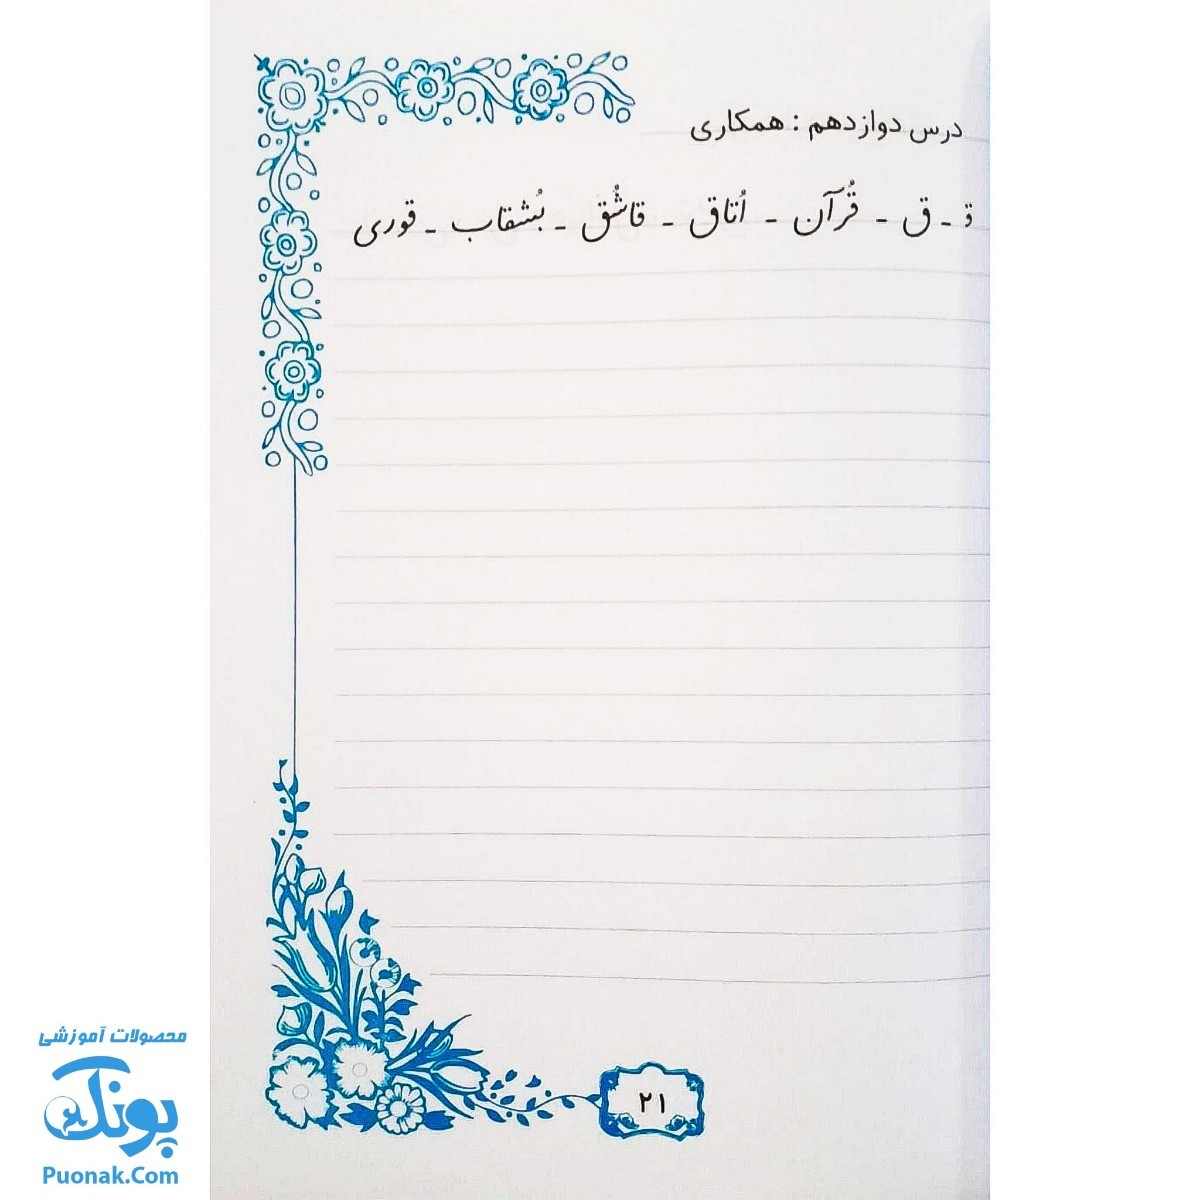 درس دوازدهم : همکاری
قـ - ق - قُرآن - اُتاق - قاشُق - بُشقاب - قوری
۲۱
محصولات آموزشی
پونک
Puonak.Com